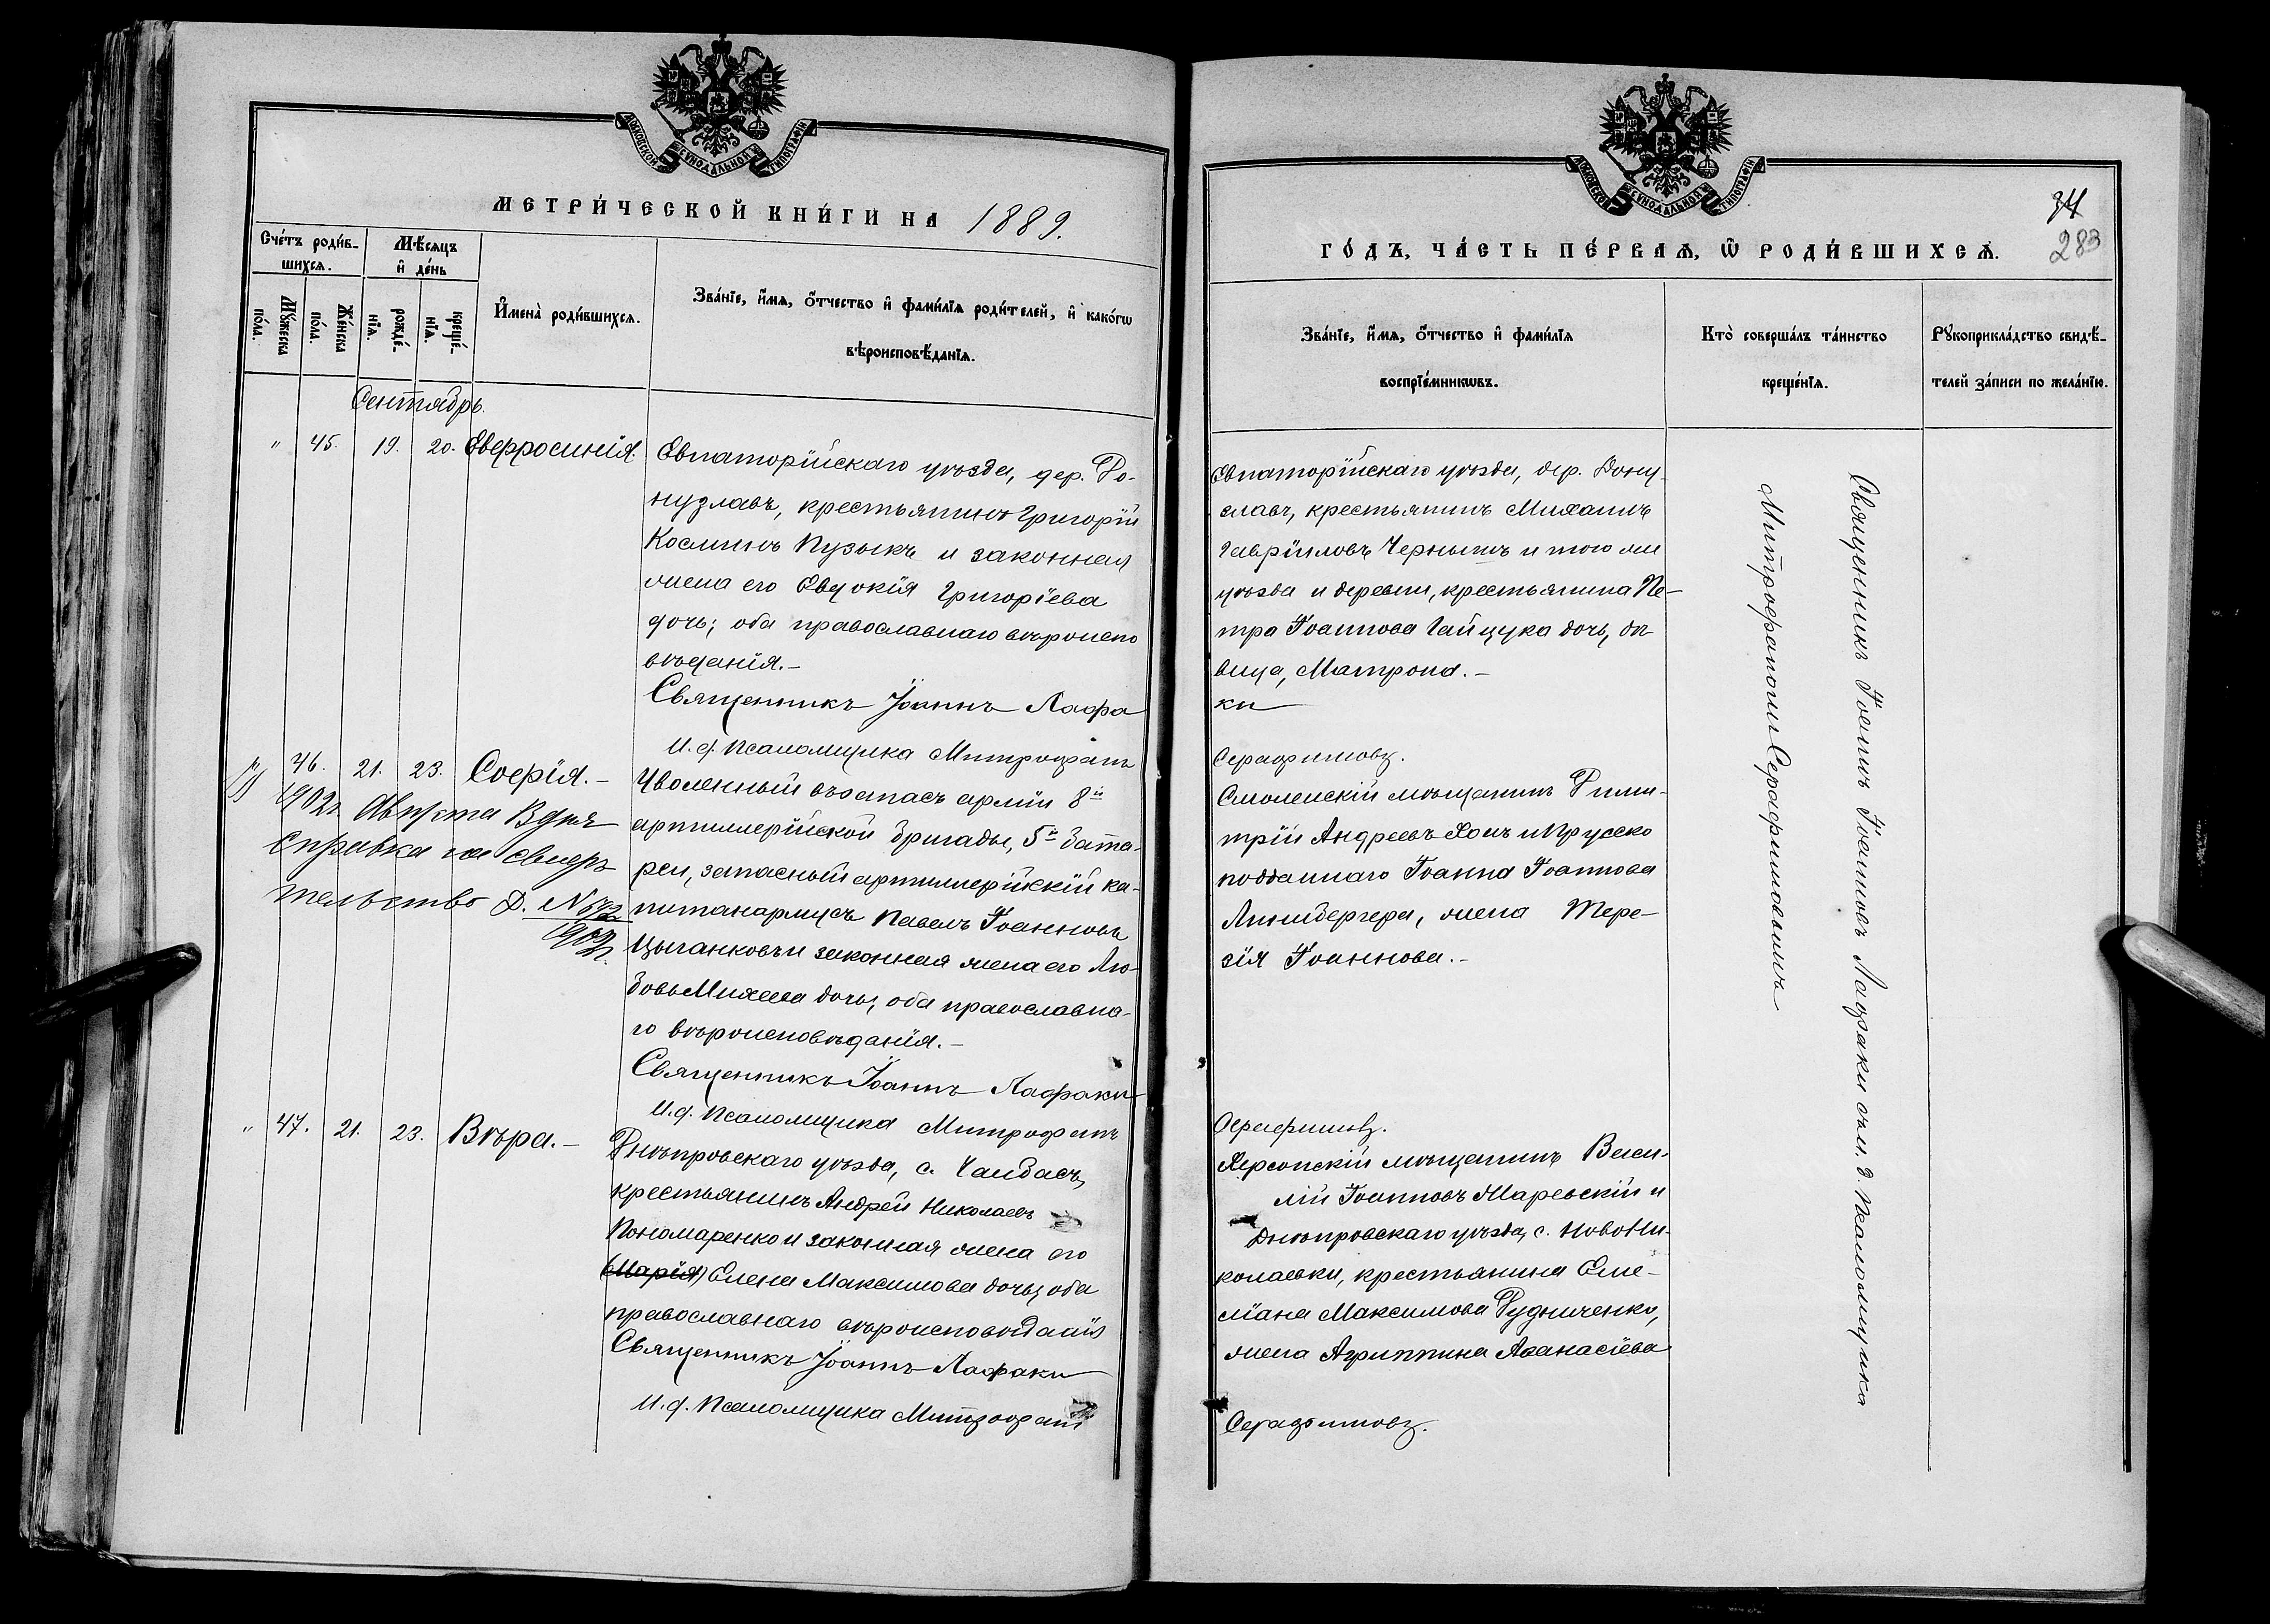 МОСКОВСКОЙ СѴНОДАЛЬНОЙ ТИПОГРАФІИ
МЕТРИ́ЧЕСКОЙ КНИ́ГИ НА 1889.
Сче́тъ роди́в-
шихсѧ.
Мѣ́сяцъ
и҆ де́нь
Мꙋ́жеска
по́ла.
Же́нска
по́ла.
рожде́-
нїѧ.
креще́-
нїѧ.
И҆мена̀ роди́вшихсѧ.
Зва́нїе, и҆́мѧ, ѻ҆́тчество и҆ фами́лїѧ роди́телей, и҆ како́гѡ
вѣроисповѣ́данїѧ.
Сентябрь.
" 45. 19. 20. Евфросинія.
Евпаторійскаго уѣзда, дер. До-
нузлавъ, крестьянинъ Григорій
Косминъ Пузыкъ и законная
жена его Евдокія Григоріева
дочь; оба православнаго вѣроиспо
вѣданія.–
Священникъ Іоаннъ Лафа
И. д. Псаломщика Митрофанъ
46. 21. 23. Софія.–
1902 г. Августа 13 дня
справка на свидѣ-
тельство
Уволенный въ запасъ арміи 8й
артиллерійской бригады, 5й бата-
реи, запасный артиллерійскій ка-
питанармусъ Павелъ Іоанновъ
Цыганковъ и законная жена его Лю-
бовь Михеева дочь, оба православна-
го вѣроисповѣданія.–
Священникъ Іоаннъ Лафаки
И. д. Псаломщика Митрофанъ
" 47. 21. 23. Вѣра.–
Днѣпровскаго уѣзда, с. Чалбасъ,
крестьянинъ Андрей Николаевъ
Пономаренко и законная жена его
(Марія) Елена Максимова дочь, оба
православнаго вѣроисповѣданія
Священникъ Іоаннъ Лафаки
И. д. Псаломщика Митрофанъ
МОСКОВСКОЙ СѴНОДАЛЬНОЙ ТИПОГРАФІИ
34
283
ГО́ДЪ, ЧА́СТЬ ПЕ́РВАѦ, Ѽ РОДИ́ВШИХСѦ.
Зва́нїе, и҆́мѧ, ѻ҆́тчество и҆ фами́лїѧ
воспрїе́мникѡвъ.
Кто̀ соверша́лъ та́инство
креще́нїѧ.
Рꙋкоприкла́дство свидѣ́-
телей за́писи по жела́нїю.
Евпаторійскаго уѣзда, дер. Дону-
славъ, крестьянинъ Михаилъ
Гавріиловъ Чернышъ и того же
уѣзда и деревни, крестьянина Пе-
тра Іоаннова Гайдука дочь, дѣ-
вица, Матрона.–
ки
Серафимовъ.
Смоленскій мѣщанинъ Дими-
трій Андреевъ Хомъ и Прусско
подданнаго Іоанна Іоаннова
Линибергера, жена Тере-
зія Іоаннова.–
Серафимовъ.
Херсонскій мѣщанинъ Васи-
лій Іоанновъ Маревскій и
Днѣпровскаго уѣзда, с. Ново Ни-
колаевки, крестьянина Еме-
ліана Максимова Рудниченко,
жена Агриппина Аѳанасіева
Серафимовъ.
Священникъ Іоаннъ Іоанновъ Лафаки съ и. д. Псаломщика
Митрофаномъ Серафимовымъ